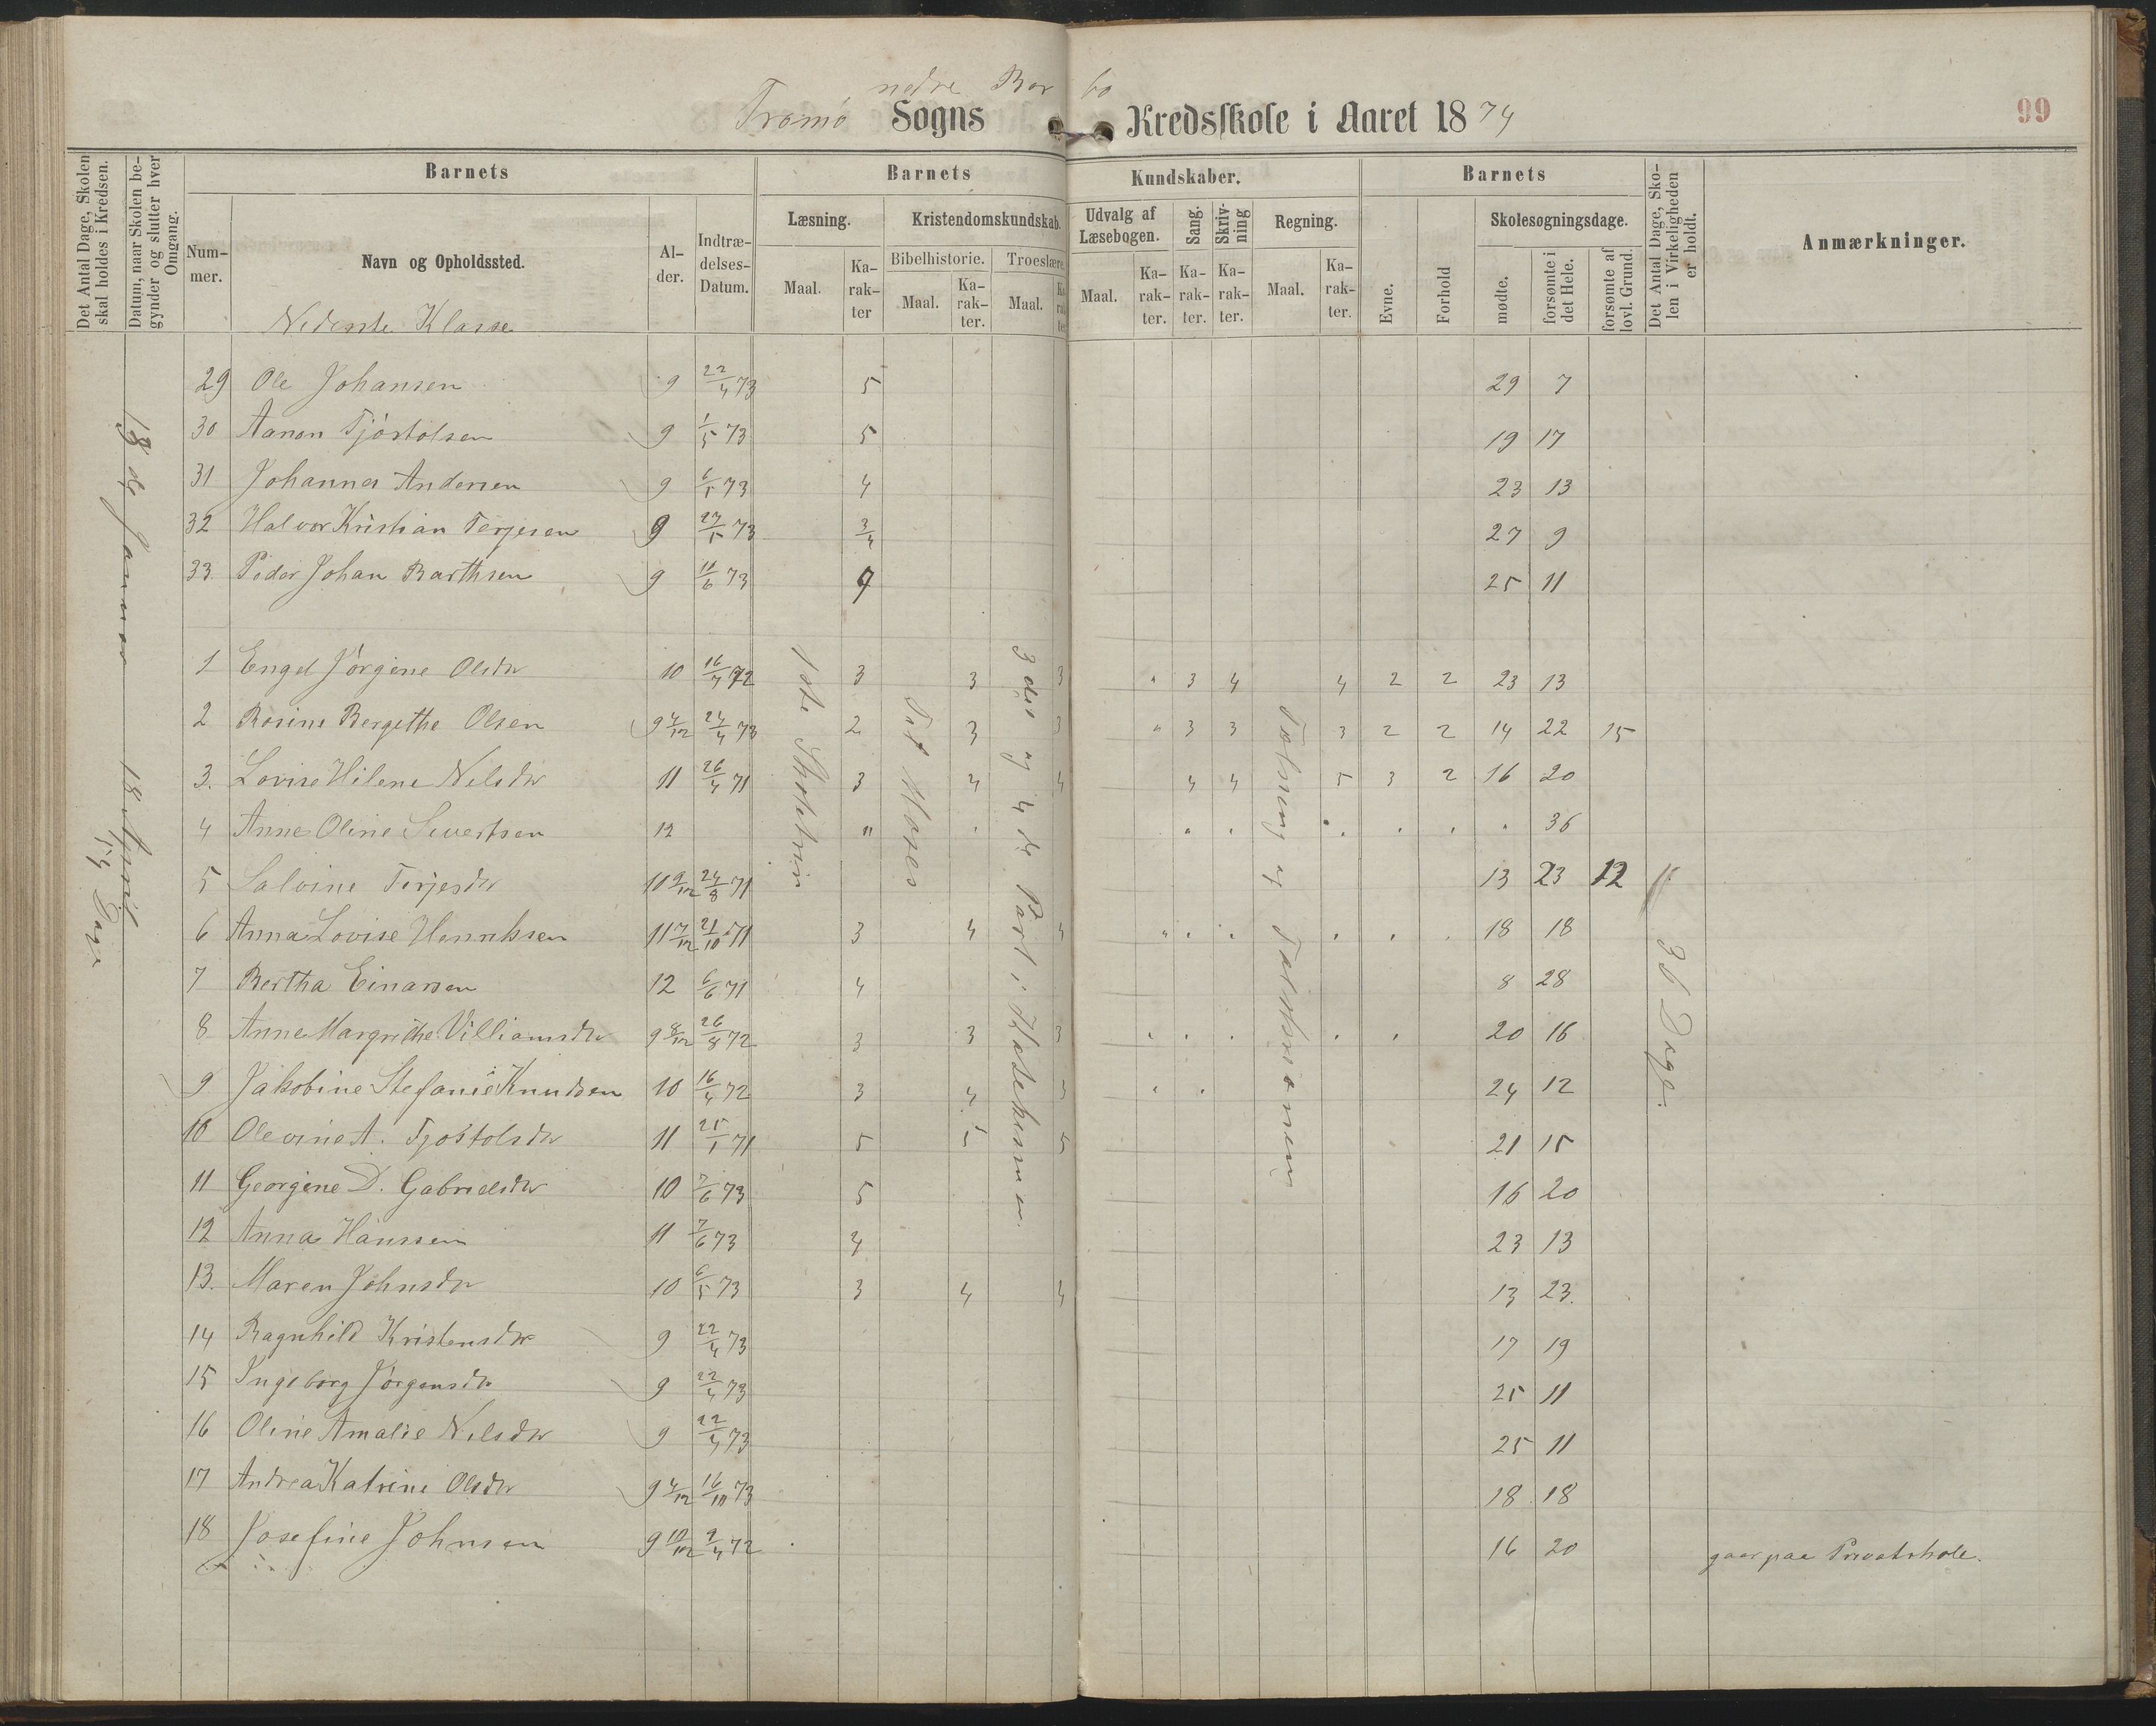 nedre Bar bo
Tromø Sogns Kredsskole i Aaret 1874
99
Det Antal Dage, Skolen skal holdes i Kredsen.
Datum, naar Skolen begynder og slutter hver Omgang.
Barnets Barnets Kundskaber. Barnets
Det Antal Dage, Skolen i Virkeligheden er holdt.
Anmærkninger.
Nummer. Navn og Opholdssted. Alder. Indtrædelses-Datum.
Læsning. Kristendomskundskab. Udvalg af Læsebogen. Sang. Skrivning Regning. Skolesøgningsdage.
Maal. Karakter Bibelhistorie. Maal. Karakter. Troeslære. Maal. Karakter
Maal. Karakter. Karakter. Karakter. Maal. Karakter. Evne. Forhold mødte. forsømte i det Hele. forsømte af lovl. Grund.
Nederste Klasse
29 Ole Johansen 9 22/4 73 5 29 7
30 Aanon Tjøstolsen 9 1/5 73 5 19 17
31 Johannes Andersen 9 6/5 73 4 23 13
32 Halvor Kristian Terjesen 9 27/5 73 3/4 27 9
33. Peder Johan Barthsen 9 11/6 73 4 25 11
1 Engel Jørgine Olsdtr 10 16/4 72 3 3 3 " 3 4 4 2 2 23 13
2 Rosine Bergethe Olsen 9 4/12 24/4 73 2 3 3 " 3 3 3 2 2 14 22 15
3. Lovise Hilene Nelsdtr 11 26/4 71 3 4 4 4 4 5 3 2 16 20
4 Anne Oline Sivertsen 12 " 36
5 Salvine Terjesdtr 10 9/12 24/8 71 13 23 12
6 Anna Lovise Henriksen 11 7/12 21/10 71 3 4 4 18 18
7 Bertha Einarsen 12 6/6 71 4 8 28
8 Anne Margrethe Villiamsdtr 9 8/12 26/8 72 3 3 3 20 16
9 Jakobine Stefanie Knudsen 10 16/4 72 3 4 3 24 12
10 Olevine A. Tjøstolsdtr 11 25/1 71 5 5 5 21 15
11 Georgine D. Gabrielsdtr 10 7/6 73 5 16 20
12 Anna Hanssen 11 7/6 73 4 23 13
13. Maren Johnsdtr 10 6/5 73 3 4 4 13 23.
14 Ragnhild Kristensdtr 9 22/4 73 17 19
15 Ingeborg Jørgensdtr 9 22/4 73 25 11
16 Oline Amalie Nelsdtr 9 22/4 73 25 11
17 Andrea Katrine Olsdtr 9 4/12 16/10 73 18 18
18 Josefine Johnsen 9 10/12 9/4 72 16 20 gaar paa Privatskole.
18 April
54 Dage
Det Moses
3die og 4de Part i Katekismen
36 Dage.